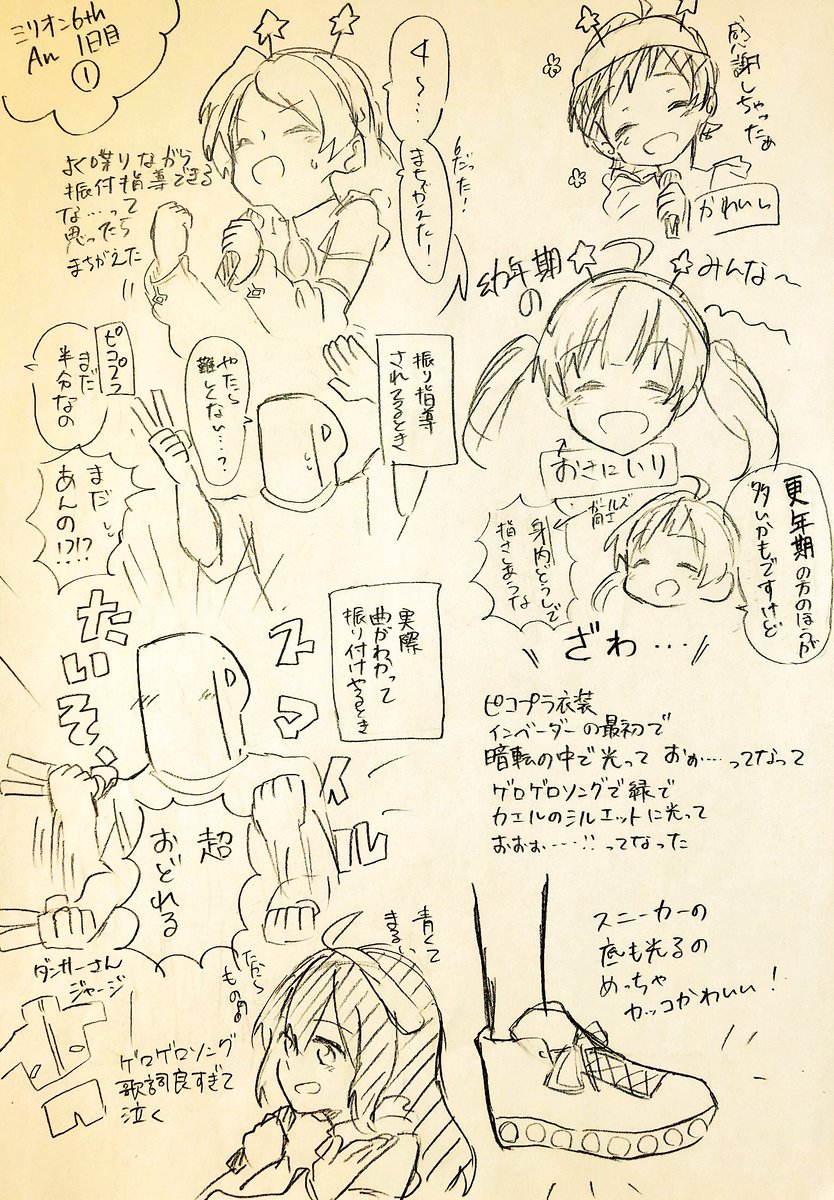 ミリオン6th
An 1日目
①
感謝しちゃったぁ
かわいい
4〜‥‥
まちがえた!
6だった!
よく喋りながら
振付指導できる
な…って
思ったら
まちがえた
幼年期
の
みんな〜
おさにいり
更年期の方のほうが
多いかもですけど
ガールズ
同士
身内どうしで
指さしあうな
ざわ…
振り指導
されてるとき
やたら
難しくない…?
ピコプラ
まだ
半分なの
まだ
あんの!?!?
実際
曲がわかって
振り付けやるとき
たいそう
スマイル
超
おどれる
ピコプラ衣装
インベーダーの最初で
暗転の中で光って おぉ…ってなって
ゲロゲロソングで緑で
カエルのシルエットに光って
おおぉ……!!ってなった
スニーカーの
底も光るの
めっちゃ
カッコかわいい!
青くて
まるい
だから
ものの
ダンサーさん
ジャージ
ゲロゲロソング
歌詞良すぎて
泣く